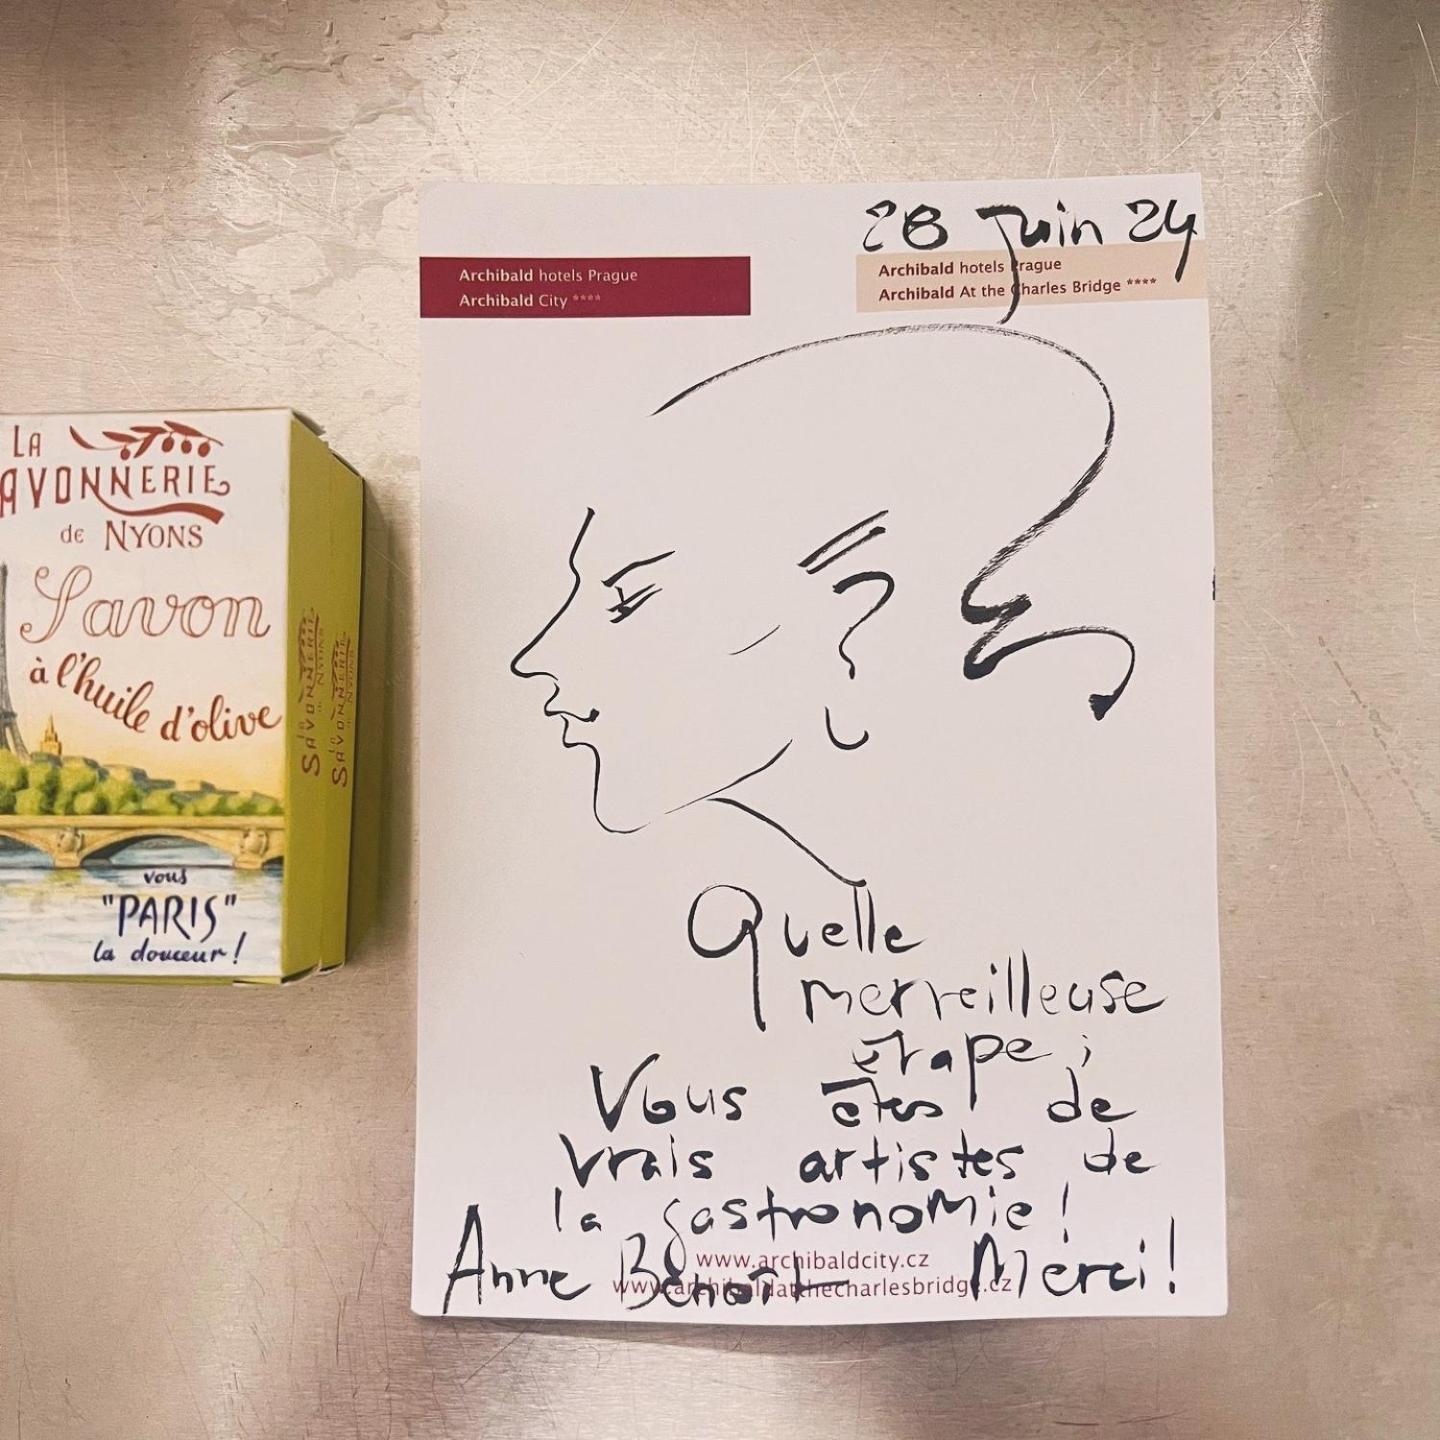 28 Juin 24
Archibald hotels Prague
Archibald City ****
Archibald hotels Prague
Archibald At the Charles Bridge ****
LA
AVONNERIE
de NYONS
Savon
à l'huile d'olive
vous
"PARIS"
la douceur!
SAVONNERIE
de NYONS
SAVONNERIE
de NYONS
Quelle
merveilleuse
étape ;
Vous êtes de
vrais artistes de
la gastronomie !
Anne Benoît Merci !
www.archibaldcity.cz
www.archibaldatthecharlesbridge.cz